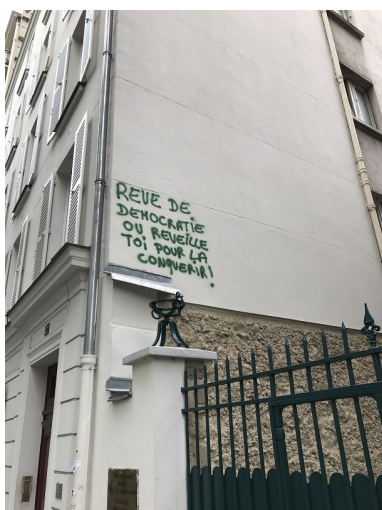 REVE DE
DEMOCRATIE
OU REVEILLE
TOI POUR LA
CONQUERIR!